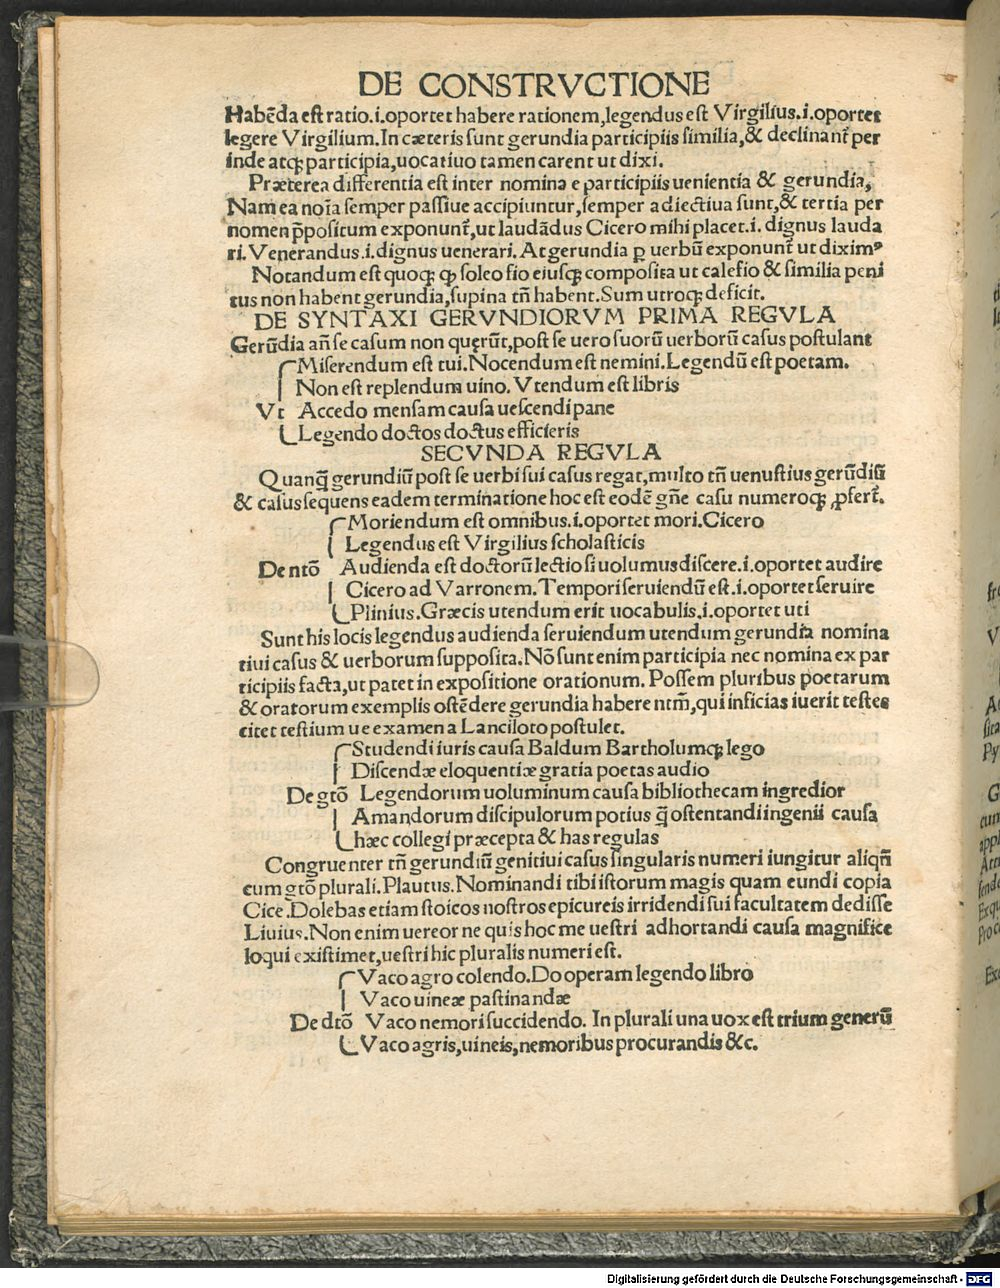 DE CONSTRVCTIONE
Habẽda est ratio.i.oportet habere rationem,legendus est Virgilius.i.oportet
legere Virgilium.In cæteris sunt gerundia participiis similia,& declinanť per
inde atqꝫ participia,uocatiuo tamen carent ut dixi.
Præterea differentia est inter nomina e participiis uenientia & gerundia,
Nam ea noĩa semper passiue accipiuntur,semper adiectiua sunt,& tertia per
nomen p̄positum exponunť,ut laudãdus Cicero mihi placet.i. dignus lauda
ri. Venerandus.i.dignus uenerari. At gerundia ꝑ uerbũ exponunť ut diximꝰ
Notandum est quoqꝫ ꝙ soleo fio eiusqꝫ composita ut calefio & similia peni
tus non habent gerundia,supina tñ habent.Sum utroqꝫ deficit.
DE SYNTAXI GERVNDIORVM PRIMA REGVLA
Gerũdia añ se casum non quęrũt,post se uero suorũ uerborũ casus postulant
Miserendum est tui. Nocendum est nemini. Legendũ est poetam.
Non est replendum uino. Vtendum est libris
Vt Accedo mensam causa uescendi pane
Legendo doctos doctus efficieris
SECVNDA REGVLA
Quanq̃ gerundiũ post se uerbi sui casus regat,multo tñ uenustius gerũdiũ
& casus sequens eadem terminatione hoc est eodẽ gñe casu numeroqꝫ ꝓferť.
Moriendum est omnibus.i.oportet mori.Cicero
Legendus est Virgilius scholasticis
De ntõ Audienda est doctorũ lectio si uolumus discere.i.oportet audire
Cicero ad Varronem. Tempori seruiendũ est.i.oportet seruire
Plinius. Græcis utendum erit uocabulis.i.oportet uti
Sunt his locis legendus audienda seruiendum utendum gerundia nomina
tiui casus & uerborum supposita. Nõ sunt enim participia nec nomina ex par
ticipiis facta,ut patet in expositione orationum. Possem pluribus poetarum
& oratorum exemplis ostẽdere gerundia habere ntm̃,qui inficias iuerit testes
citet testium ue examen a Lanciloto postulet.
Studendi iuris causa Baldum Bartholumqꝫ lego
Discendæ eloquentiæ gratia poetas audio
De gtõ Legendorum uoluminum causa bibliothecam ingredior
Amandorum discipulorum potius q̃ ostentandi ingenii causa
hæc collegi præcepta & has regulas
Congruenter tñ gerundiũ genitiui casus singularis numeri iungitur aliqñ
cum gtõ plurali. Plautus. Nominandi tibi istorum magis quam eundi copia
Cice. Dolebas etiam stoicos nostros epicureis irridendi sui facultatem dedisse
Liuius. Non enim uereor ne quis hoc me uestri adhortandi causa magnifice
loqui existimet,uestri hic pluralis numeri est.
Vaco agro colendo. Do operam legendo libro
Vaco uineæ pastinandæ
De dtõ Vaco nemori succidendo. In plurali una uox est trium generũ
Vaco agris,uineis,nemoribus procurandis &c.
Digitalisierung gefördert durch die Deutsche Forschungsgemeinschaft - DFG